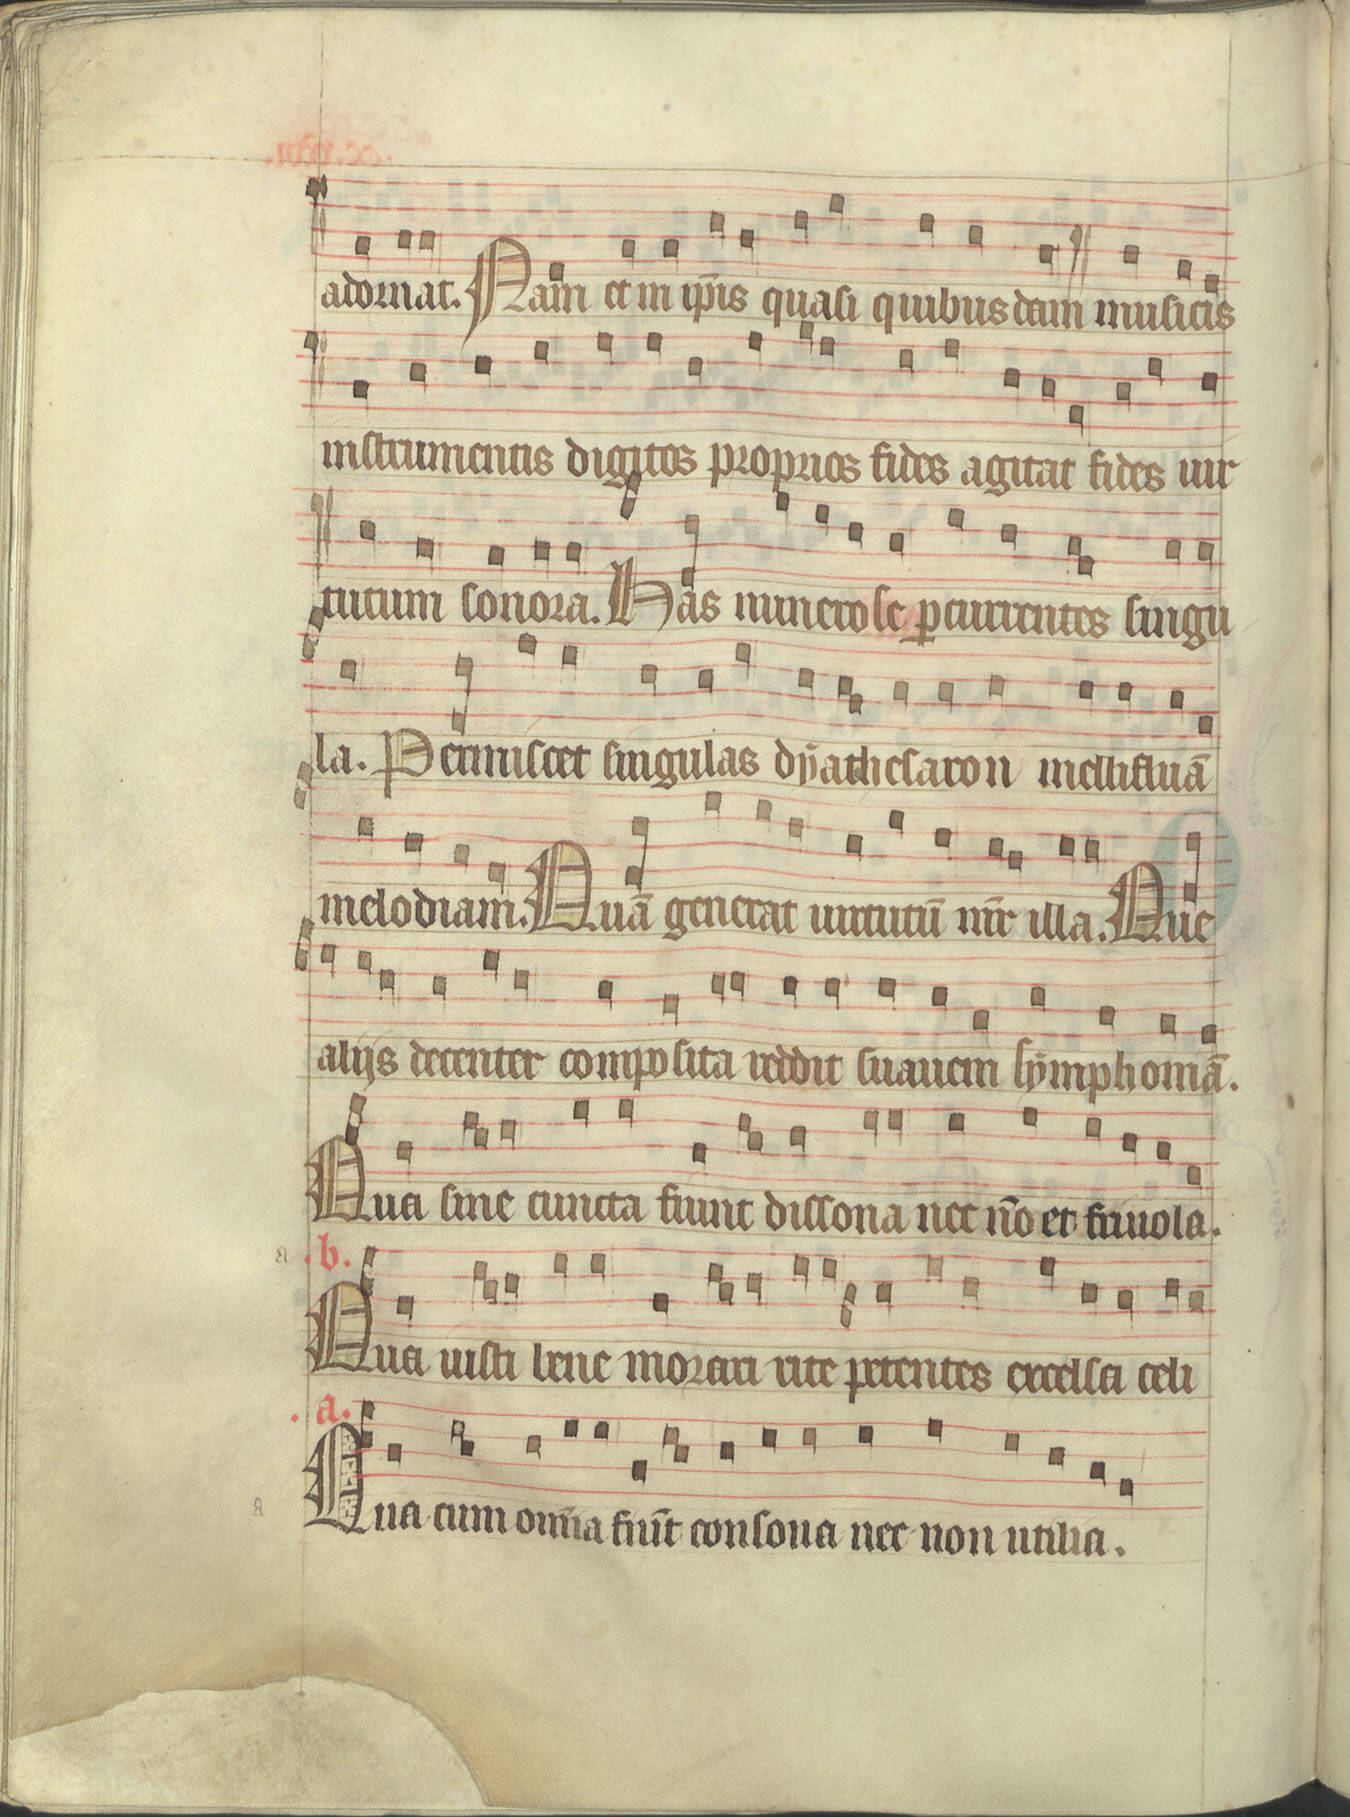 adornat. Nam et in ip̄is quasi quibusdam musicis
instrumentis digitos proprios fides agitat fides uir
tutum sonora. Has numerose ꝑcurrentes singu
la. Permiscet singulas dÿathesaron mellifluā
melodiam. Quā generat uirtutū mr̄ illa. Que
alijs decenter composita reddit suauem sÿmphoniā.
Qua sine cuncta fiunt dissona nec nō et friuola.
a .b.
Qua uisti bene morati rite petentes excelsa celi
.a.
a
Qua cum om̄ia fiūt consona nec non utilia.